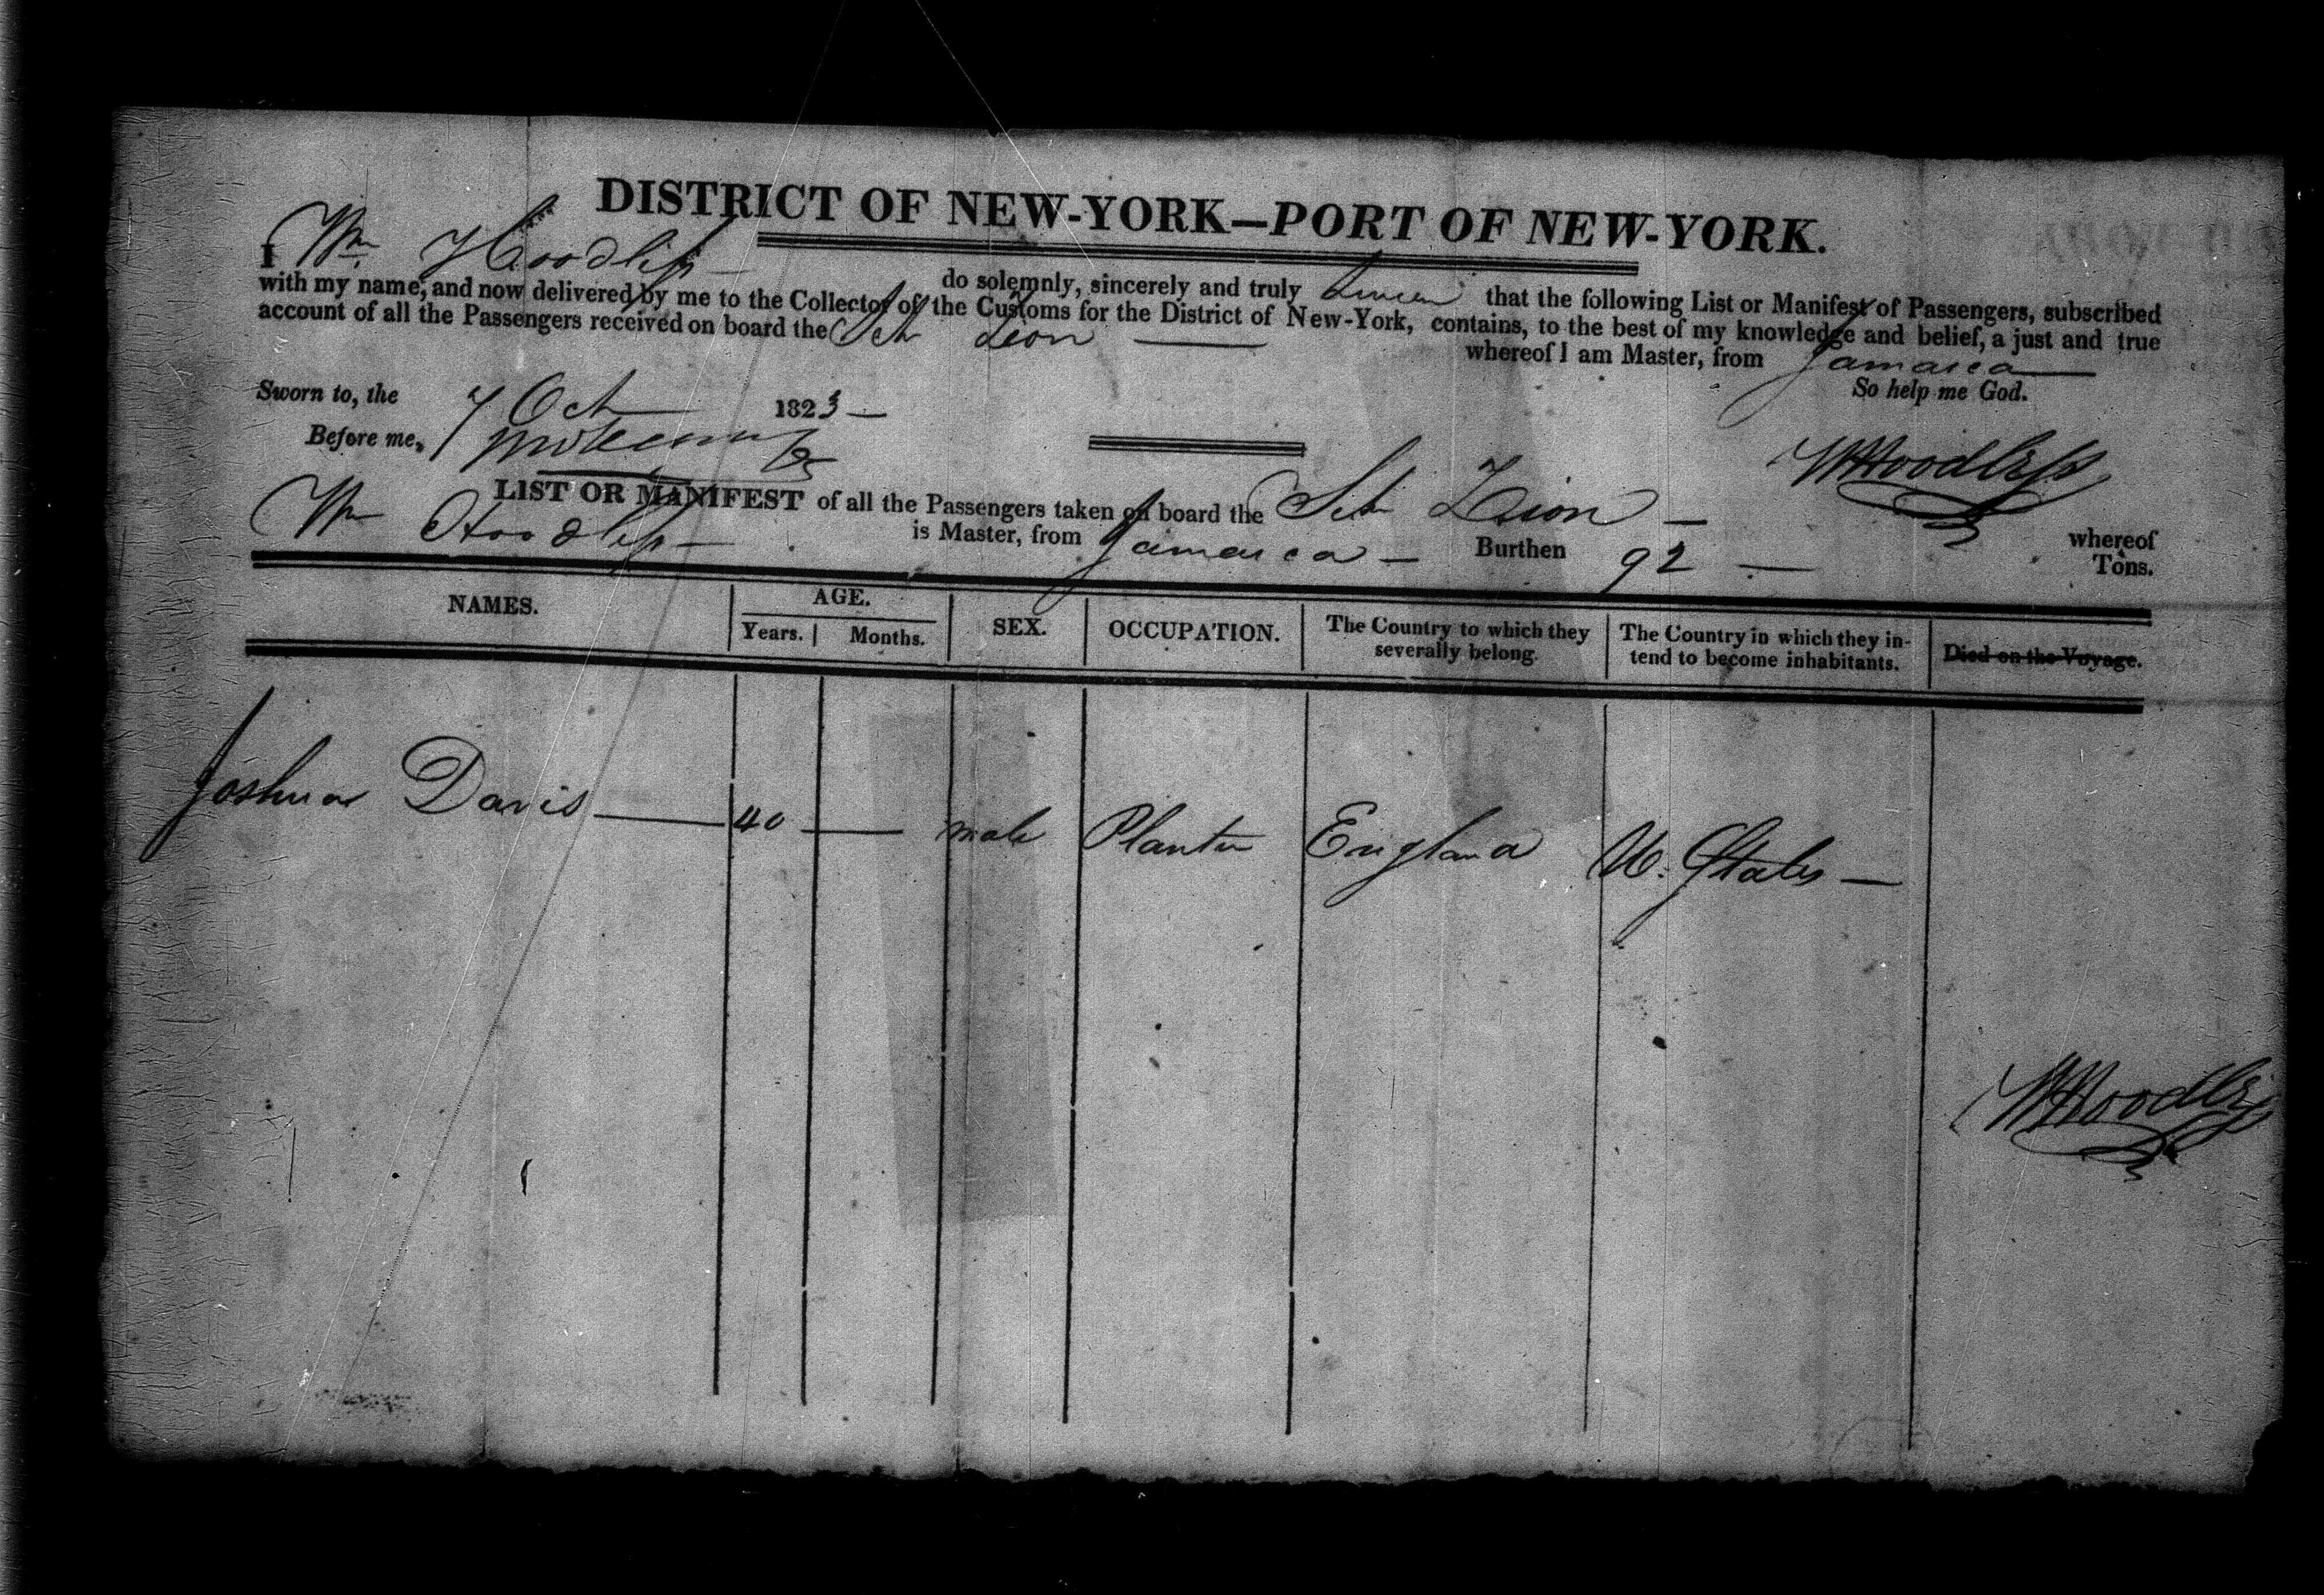 DISTRICT OF NEW-YORK—PORT OF NEW-YORK.
I Wm Hoodless do solemnly, sincerely and truly Swear that the following List or Manifest of Passengers, subscribed
with my name, and now delivered by me to the Collector of the Customs for the District of New-York, contains, to the best of my knowledge and belief, a just and true
account of all the Passengers received on board the Sch Lion — whereof I am Master, from Jamaica —
So help me God.
Sworn to, the 7 Oct 1823 —
Before me,
W Hoodless
LIST OR MANIFEST of all the Passengers taken on board the Sch Lion — whereof
Wm Hoodless — is Master, from Jamaica — Burthen 92 — Tons.
NAMES. AGE. SEX. OCCUPATION. The Country to which they severally belong. The Country in which they intend to become inhabitants. Died on the Voyage.
Years. Months.
Joshua Davis — 40 — male Planter England U. States —
W Hoodless